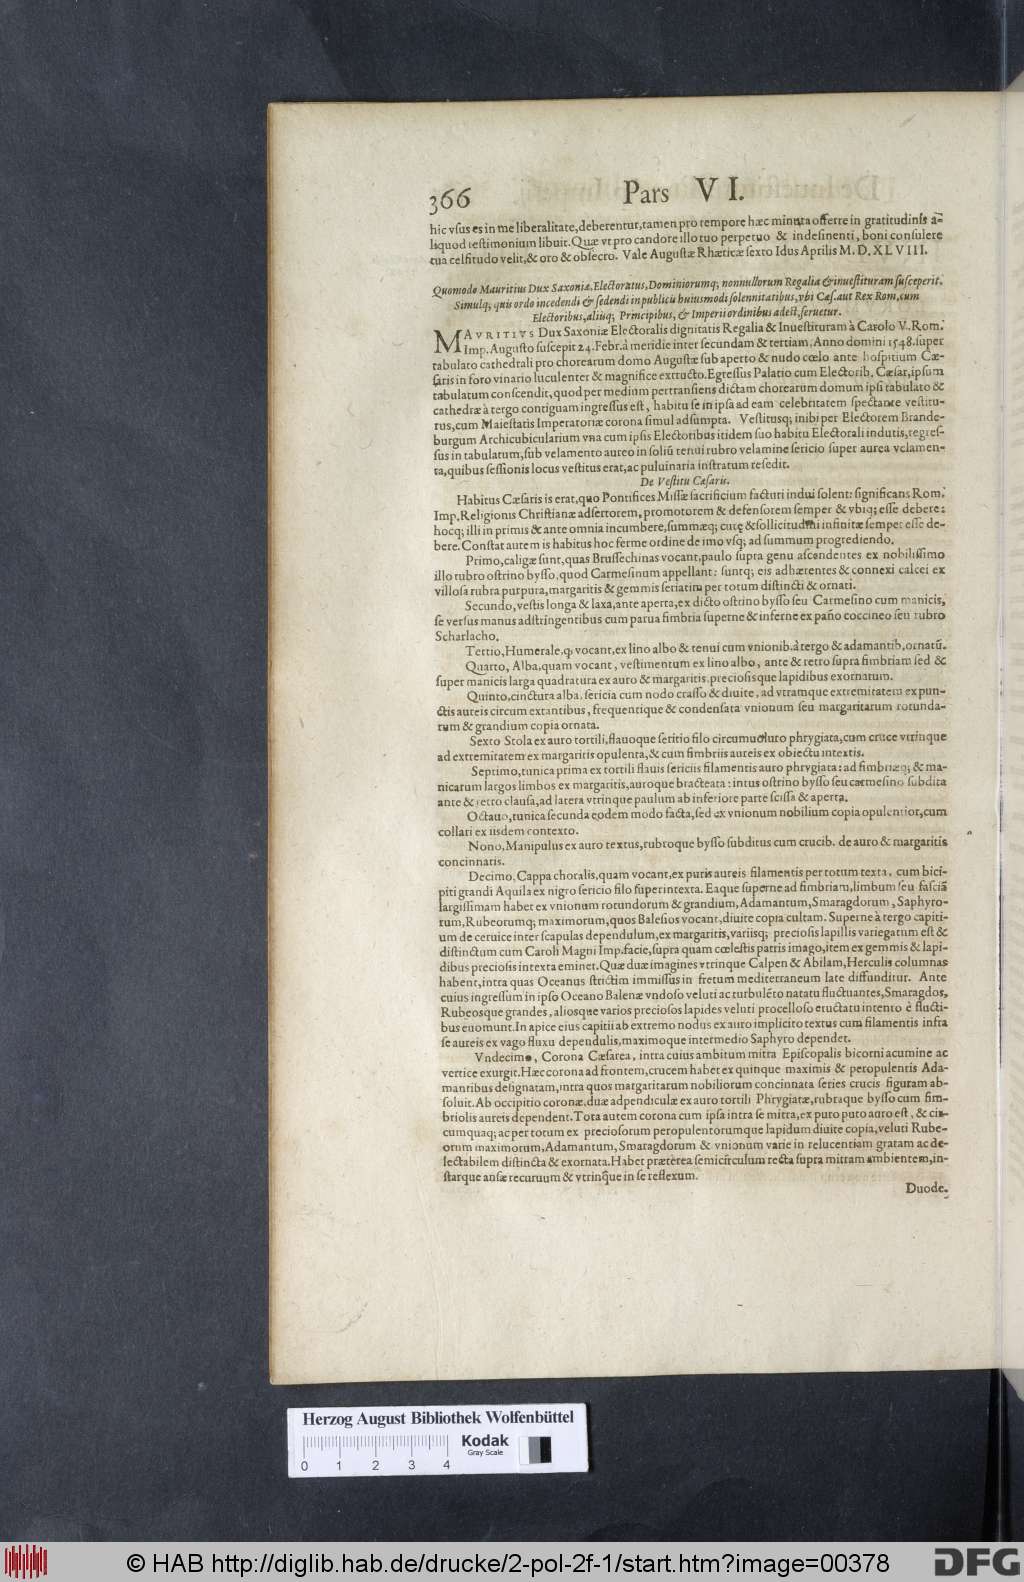 366 Pars VI.
hic vſus es in me liberalitate, deberentur, tamen pro tempore hæc minuta offerre in gratitudinis a-
liquod teſtimonium libuit. Quæ vt pro candore illo tuo perpetuo & indeſinenti, boni conſulere
tua celſitudo velit, & oro & obſecro. Vale Auguſtæ Rhæticæ ſexto Idus Aprilis M. D. XLVIII.
Quomodo Mauritius Dux Saxoniæ, Electoratus, Dominiorumq; nonnullorum Regalia & inueſtituram ſuſceperit.
Simulq; quis ordo incedendi & ſedendi in publicis huiusmodi ſolennitatibus, vbi Cæſ. aut Rex Rom. cum
Electoribus, aliisq; Principibus, & Imperii ordinibus adeſt, ſeruetur.
MAVRITIVS Dux Saxoniæ Electoralis dignitatis Regalia & Inueſtituram à Carolo V. Rom.
Imp. Auguſto ſuſcepit 24. Febr. à meridie inter ſecundam & tertiam, Anno domini 1548. ſuper
tabulato cathedrali pro chorearum domo Auguſtæ ſub aperto & nudo cœlo ante hoſpitium Cæ-
ſaris in foro vinario luculenter & magnifice extructo. Egreſſus Palatio cum Electorib. Cæſar, ipſum
tabulatum conſcendit, quod per medium pertranſiens dictam chorearum domum ipſi tabulato &
cathedræ à tergo contiguam ingreſſus eſt, habitu ſe in ipſa ad eam celebritatem ſpectante veſtitu-
rus, cum Maieſtatis Imperatoriæ corona ſimul adſumpta. Veſtitusq; inibi per Electorem Brande-
burgum Archicubicularium vna cum ipſis Electoribus itidem ſuo habitu Electorali indutis, regreſ-
ſus in tabulatum, ſub velamento aureo in ſoliū tenui rubro velamine ſericio ſuper aurea velamen-
ta, quibus ſeſſionis locus veſtitus erat, ac puluinaria inſtratum reſedit.
De Veſtitu Cæſaris.
Habitus Cæſaris is erat, quo Pontifices Miſſæ ſacrificium facturi indui ſolent: ſignificans Rom.
Imp. Religionis Chriſtianæ adſertorem, promotorem & defenſorem ſemper & vbiq; eſſe debere:
hocq; illi in primis & ante omnia incumbere, ſummæq; curę & ſollicitudini infinitæ ſemper eſſe de-
bere. Conſtat autem is habitus hoc ferme ordine de imo vſq; ad ſummum progrediendo.
Primo, caligæ ſunt, quas Bruſſechinas vocant, paulo ſupra genu aſcendentes ex nobiliſſimo
illo rubro oſtrino byſſo, quod Carmeſinum appellant: ſuntq; eis adhærentes & connexi calcei ex
villoſa rubra purpura, margaritis & gemmis ſeriatim per totum diſtincti & ornati.
Secundo, veſtis longa & laxa, ante aperta, ex dicto oſtrino byſſo ſeu Carmeſino cum manicis,
ſe verſus manus adſtringentibus cum parua fimbria ſuperne & inferne ex paño coccineo ſeu rubro
Scharlacho.
Tertio, Humerale, q; vocant, ex lino albo & tenui cum vnionib. à tergo & adamantib. ornatū.
Quarto, Alba, quam vocant, veſtimentum ex lino albo, ante & retro ſupra fimbriam ſed &
ſuper manicis larga quadratura ex auro & margaritis, precioſisque lapidibus exornatum.
Quinto, cinctura alba, ſericia cum nodo craſſo & diuite, ad vtramque extremitatem ex pun-
ctis aureis circum extantibus, frequentique & condenſata vnionum ſeu margaritarum rotunda-
rum & grandium copia ornata.
Sexto Stola ex auro tortili, flauoque ſeritio filo circumuoluto phrygiata, cum cruce vtrinque
ad extremitatem ex margaritis opulenta, & cum fimbriis aureis ex obiectu intextis.
Septimo, tunica prima ex tortili flauis ſericiis filamentis auro phrygiata: ad fimbriæq; & ma-
nicarum largos limbos ex margaritis, auroque bracteata: intus oſtrino byſſo ſeu carmeſino ſubdita
ante & retro clauſa, ad latera vtrinque paulum ab inferiore parte ſciſſa & aperta.
Octauo, tunica ſecunda eodem modo facta, ſed ex vnionum nobilium copia opulentior, cum
collari ex iisdem contexto.
Nono, Manipulus ex auro textus, rubroque byſſo ſubditus cum crucib. de auro & margaritis
concinnatis.
Decimo, Cappa choralis, quam vocant, ex puris aureis filamentis per totum texta, cum bici-
piti grandi Aquila ex nigro ſericio filo ſuperintexta. Eaque ſuperne ad fimbriam, limbum ſeu faſciā
largiſſimam habet ex vnionum rotundorum & grandium, Adamantum, Smaragdorum, Saphyro-
rum, Rubeorumq; maximorum, quos Baleſios vocant, diuite copia cultam. Superne à tergo capiti-
um de ceruice inter ſcapulas dependulum, ex margaritis, variisq; precioſis lapillis variegatum eſt &
diſtinctum cum Caroli Magni Imp. facie, ſupra quam cœleſtis patris imago, item ex gemmis & lapi-
dibus precioſis intexta eminet. Quæ duæ imagines vtrinque Calpen & Abilam, Herculis columnas
habent, intra quas Oceanus ſtrictim immiſſus in fretum mediterraneum late diffunditur. Ante
cuius ingreſſum in ipſo Oceano Balenæ vndoſo veluti ac turbulēto natatu fluctuantes, Smaragdos,
Rubeosque grandes, aliosque varios precioſos lapides veluti procelloſo eructatu intento è flucti-
bus euomunt. In apice eius capitii ab extremo nodus ex auro implicito textus cum filamentis infra
ſe aureis ex vago fluxu dependulis, maximoque intermedio Saphyro dependet.
Vndecimo, Corona Cæſarea, intra cuius ambitum mitra Epiſcopalis bicorni acumine ac
vertice exurgit. Hæc corona ad frontem, crucem habet ex quinque maximis & peropulentis Ada-
mantibus deſignatam, intra quos margaritarum nobiliorum concinnata ſeries crucis figuram ab-
ſoluit. Ab occipitio coronæ, duæ adpendiculæ ex auro tortili Phrygiatæ, rubraque byſſo cum fim-
briolis aureis dependent. Tota autem corona cum ipſa intra ſe mitra, ex puro puto auro eſt, & cir-
cumquaq; ac per totum ex precioſorum peropulentorumque lapidum diuite copia, veluti Rube-
orum maximorum, Adamantum, Smaragdorum & vnionum varie in relucentiam gratam ac de-
lectabilem diſtincta & exornata. Habet præterea ſemicirculum recta ſupra mitram ambientem, in-
ſtarque anſæ recuruum & vtrinq̃ue in ſe reflexum.
Duode.
Herzog August Bibliothek Wolfenbüttel
Kodak
Gray Scale
0 1 2 3 4
© HAB http://diglib.hab.de/drucke/2-pol-2f-1/start.htm?image=00378
DFG